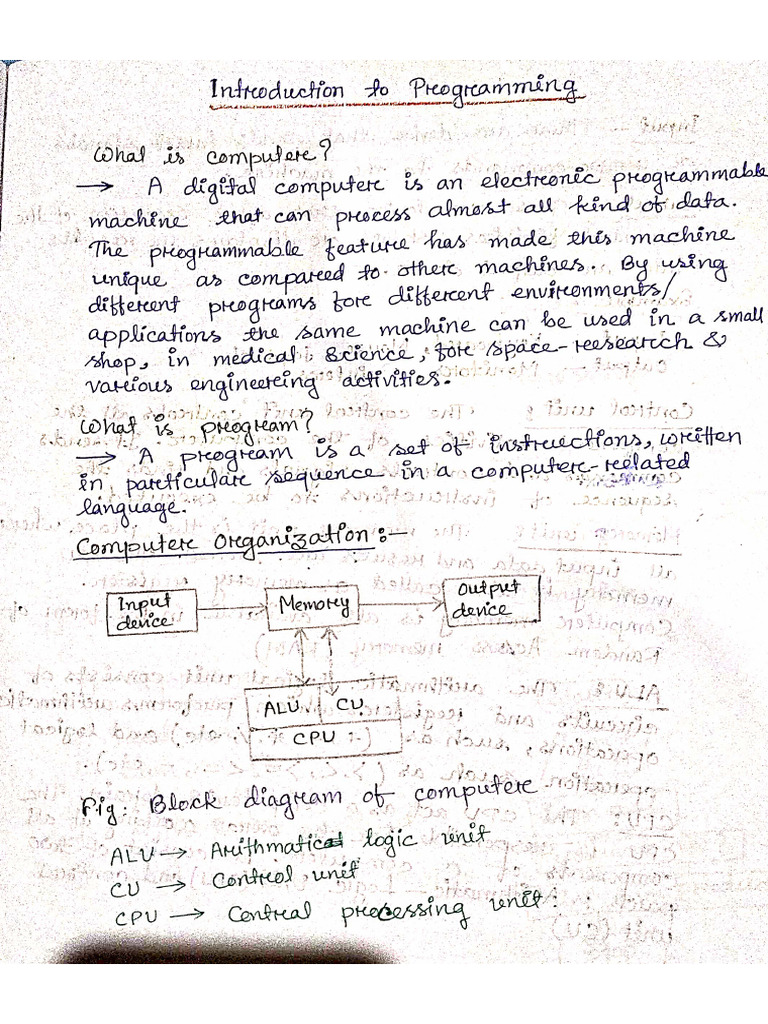 Introduction to Programming
What is computer?
→ A digital computer is an electronic programmable
machine that can process almost all kind of data.
The programmable feature has made this machine
unique as compared to other machines. By using
different programs for different environments/
applications the same machine can be used in a small
shop, in medical science, for space-research &
various engineering activities.
What is program?
→ A program is a set of instructions, written
in particular sequence in a computer-related
language.
Computer Organization :-
Input device
Memory
Output device
ALU CU
CPU :-
Fig: Block diagram of computer
ALU → Arithmatic logic unit
CU → Control unit
CPU → Central processing unit